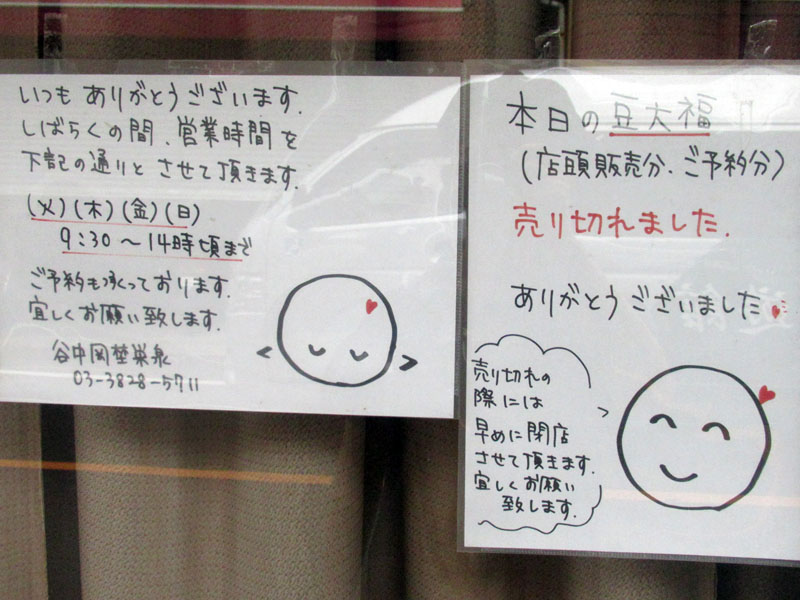 いつも ありがとうございます.
しばらくの間、営業時間を
下記の通りと させて頂きます.
(火)(木)(金)(日)
9:30〜14時頃まで
ご予約も承っております.
宜しくお願い致します.
谷中岡埜栄泉
03-3828-5711
本日の豆大福
(店頭販売分、ご予約分)
売り切れました.
ありがとうございました
売り切れの
際には
早めに閉店
させて頂きます.
宜しくお願い
致します.